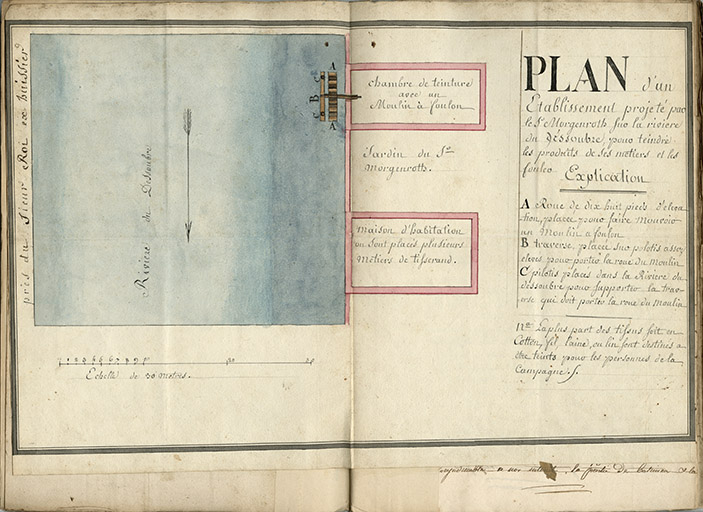 près du Sieur Roi huissier
Riviere du Dessoubre
A
C
B
C
A
Chambre de teinture
avec un
Moulin à foulon
Jardin du Sr.
Morgenroth.
maison d'habitation
ou sont placés plusieurs
métiers de tisserand.
1 2 3 4 5 6 7 8 9 10 20
Echelle de 30 metres.
PLAN d'un
Etablissement projeté par
le Sr. Morgenroth sur la riviere
du Dessoubre, pour teindre
les produits de ses métiers et les
fouler
Explication
A Roue de dix huit pieds d'eleva-
tion, placée pour faire mouvoir
un Moulin a foulon
B traverse, placée sur pilotis assez
elevés pour porter la roue du Moulin
C pilotis placés dans la Riviere du
dessoubre pour supporter la trav-
erse qui doit porter la roue du Moulin
Nta. La plus part des tissus soit en
Cotton, fil, laine, ou lin sont destinés a
etre teints pour les personnes de la
Campagne ./.
la